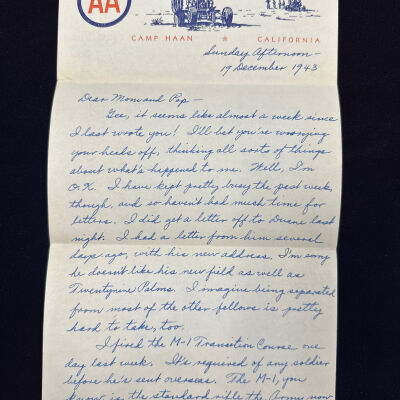 AA
CAMP HAAN ★ CALIFORNIA
Sunday Afternoon -
19 December 1943
Dear Mom and Pop -
Gee, it seems like almost a week since
I last wrote you! I'll bet you're worrying
your heads off, thinking all sorts of things
about what's happened to me. Well, I'm
O.K. I have kept pretty busy the past week,
though, and so haven't had much time for
letters. I did get a letter off to Duane last
night. I had a letter from him several
days ago, with his new address. I'm sorry
he doesn't like his new field as well as
Twentynine Palms. I imagine being separated
from most of the other fellows is pretty
hard to take, too.
I fired the M-1 Transition Course one
day last week. It's required of any soldier
before he's sent overseas. The M-1, you
know, is the standard rifle the Army now